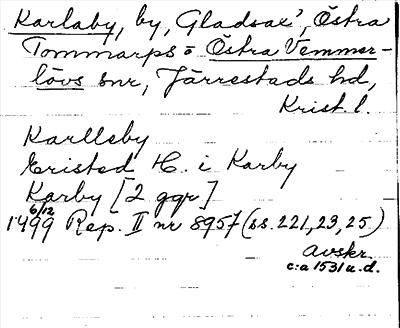 Karlaby, by, Gladsax', Östra
Tommarps o Östra Vemmer-
lövs snr, Järrestads hd,
Krist. l.
Karlleby
Eristed H. i Karby
Karby [2 ggr]
1499 6/12 Rep. II nr 8957 (ss. 221, 23, 25)
Avskr.
c:a 1531 u.d.